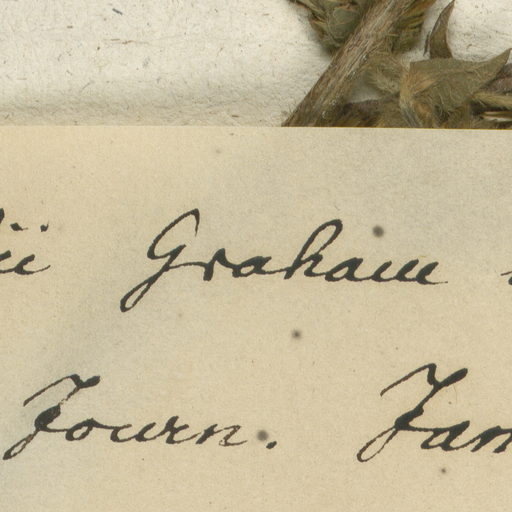 ii Graham
Journ. Jan